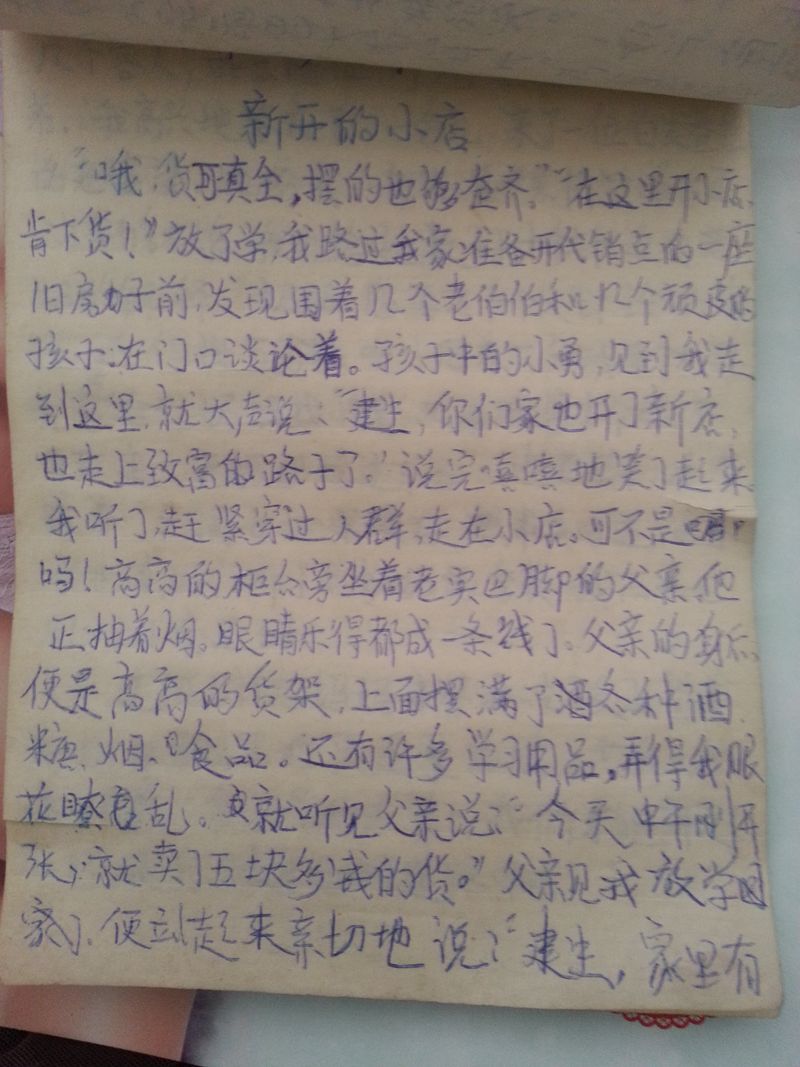 新开的小店
“哦,货可真全,摆的也够整齐。”“在这里开小店,
肯下货!”放了学,我路过我家准备开代销点的一座
旧房子前,发现围着几个老伯伯和几个顽皮的
孩子.在门口谈论着。孩子中的小勇,见到我走
到这里,就大声说:“建生,你们家也开了新店,
也走上致富的路子了。”说完嘻嘻地笑了起来。
我听了,赶紧穿过人群,走在小店。可不是
吗!高高的柜台旁坐着老实巴脚的父亲,他
正抽着烟。眼睛乐得都成一条线了。父亲的身后,
便是高高的货架,上面摆满了酒各种酒、
糖、烟、食品。还有许多学习用品,弄得我眼
花瞭乱。就听见父亲说:“今天中午刚开
张,就卖了五块多钱的货。”父亲见我放学回
家了,便站起来亲切地说:“建生,家里有